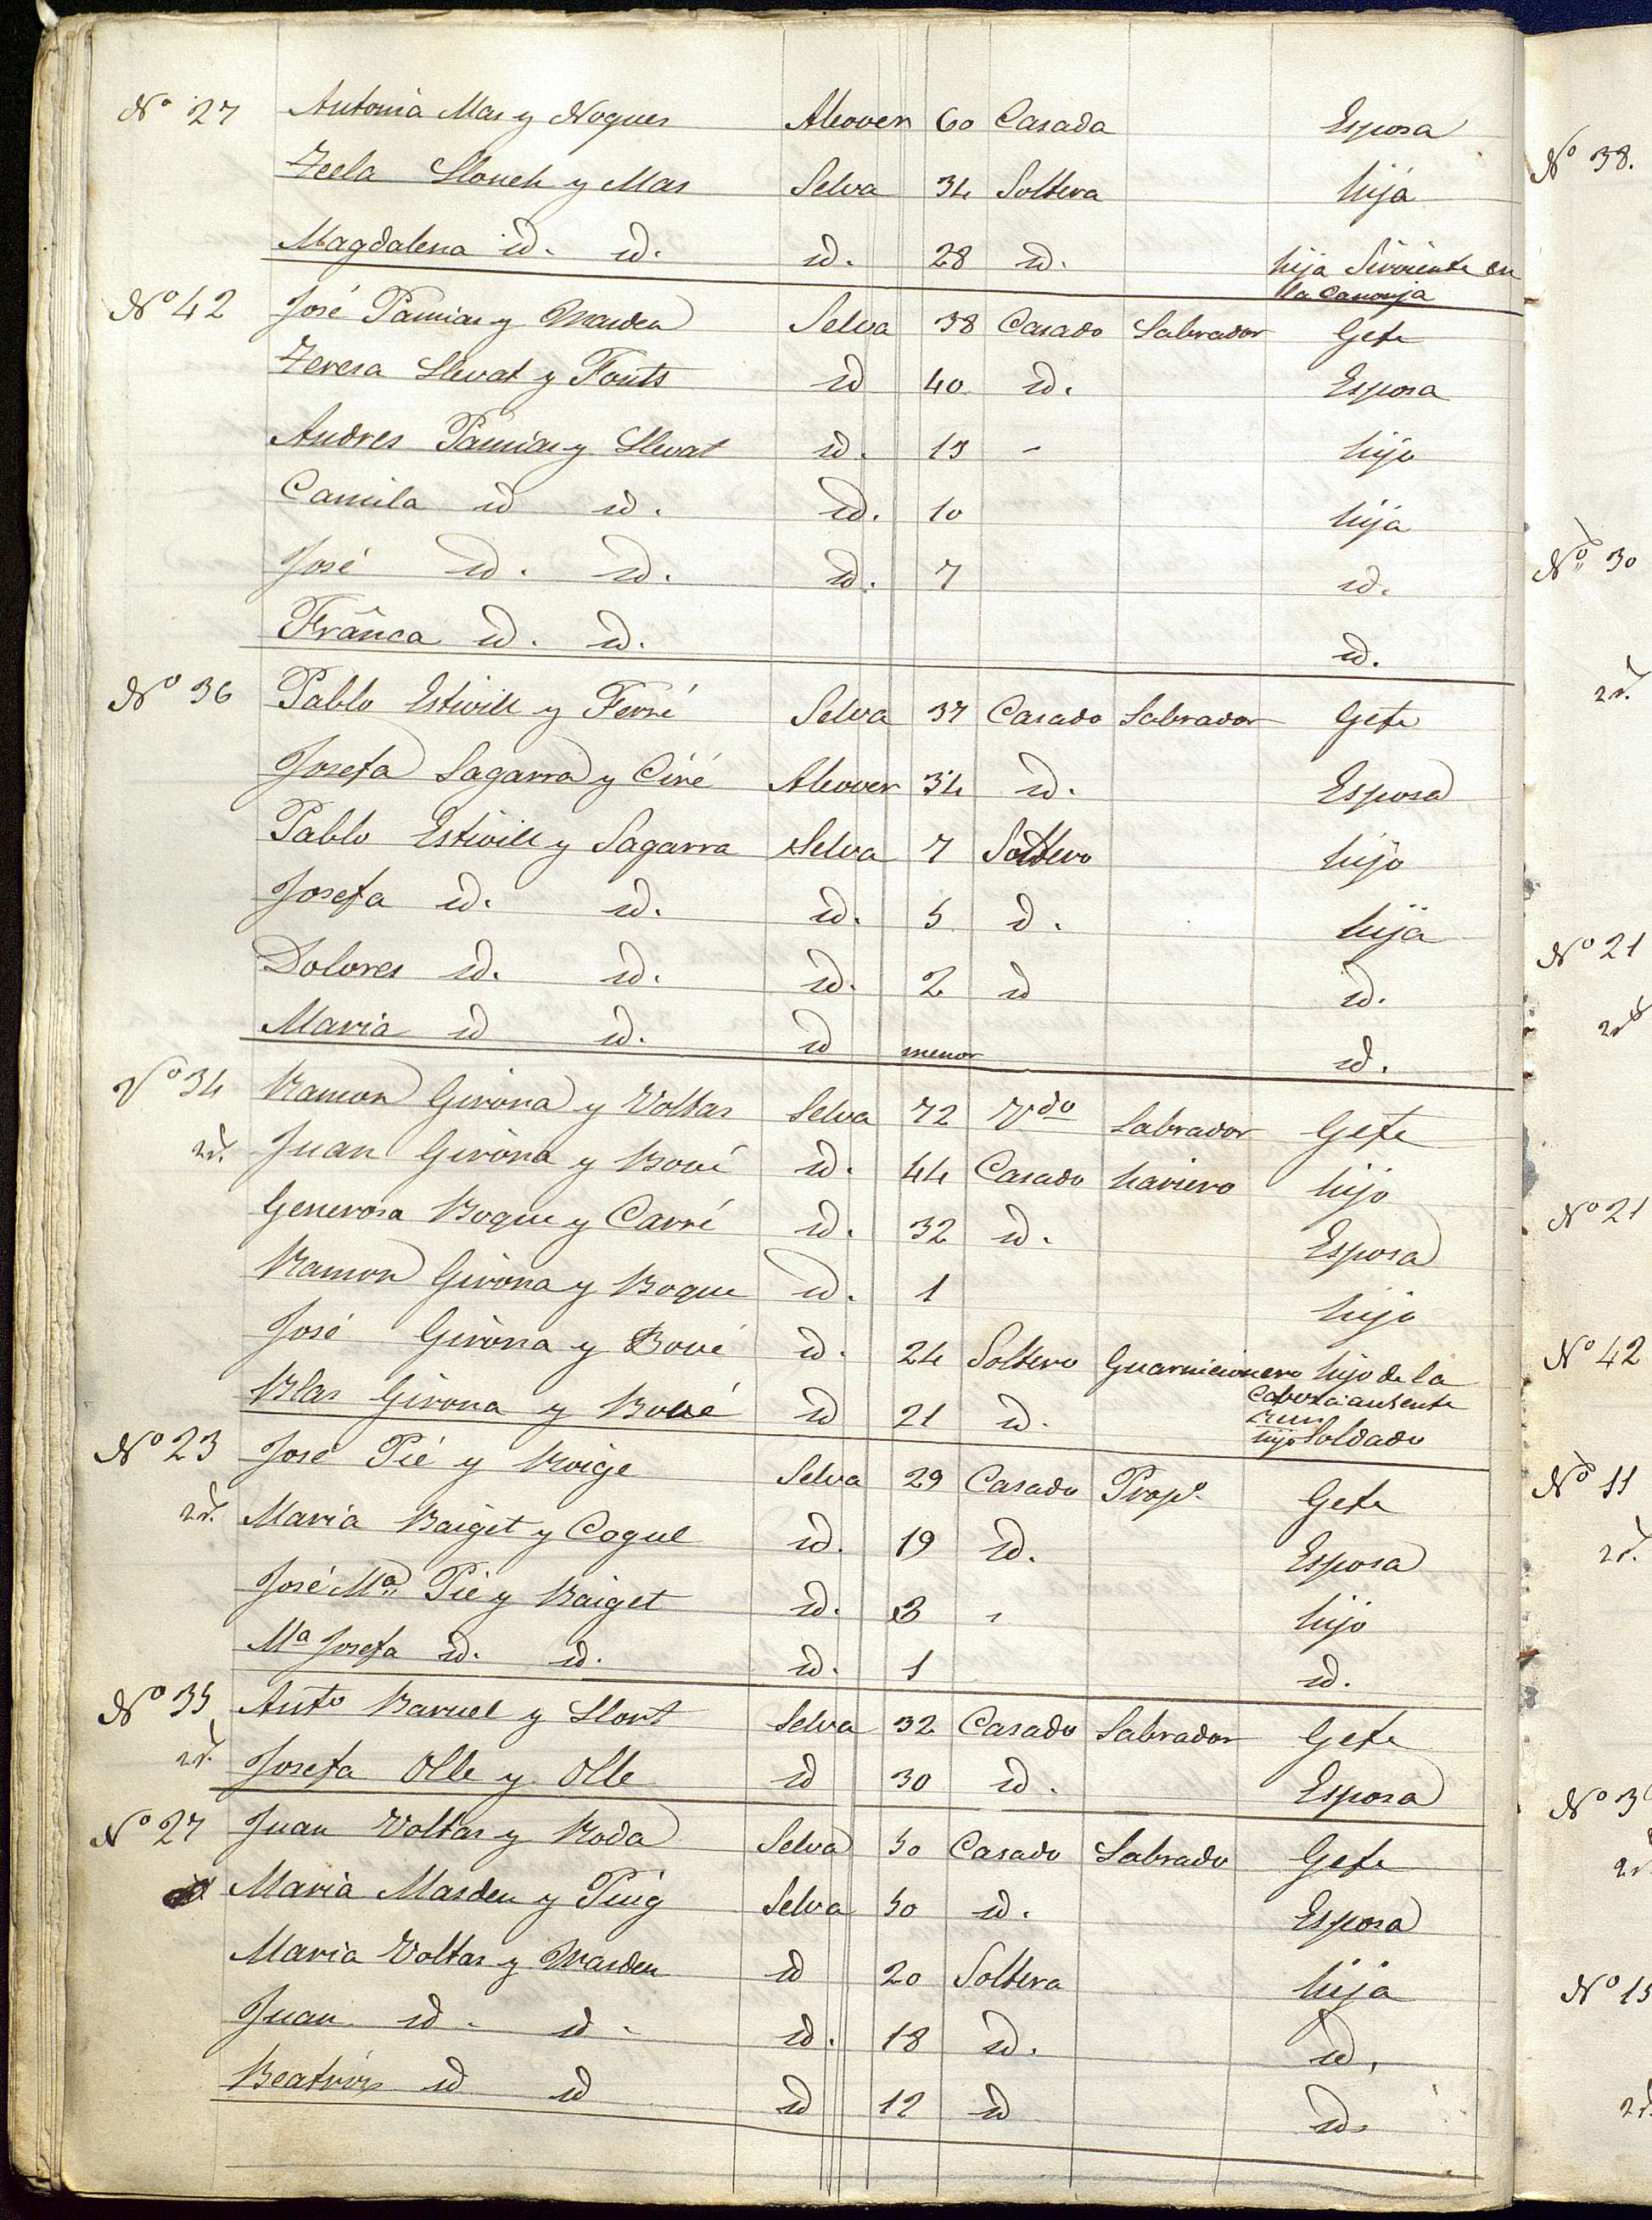 Nº 27 Antonia Mas y Nogues Alcover 60 Casada Esposa
Tecla Llonch y Mas Selva 34 Soltera hija
Magdalena id. id. id. 28 id. hija Sirviente en
la Canonja
Nº 42 José Pamias y Masdeu Selva 38 Casado Labrador Gefe
Teresa Llevat y Fonts id 40 id. Esposa
Andres Pamias y Llevat id. 13 - hijo
Camila id id. id. 10 hija
José id. id. id. 7 id.
Franca id. id. id.
Nº 36 Pablo Estivill y Ferré Selva 37 Casado Labrador Gefe
Josefa Sagarra y Ciré Alcover 34 id. Esposa
Pablo Estivill y Sagarra Selva 7 Soltero hijo
Josefa id. id. id. 5 id. hija
Dolores id. id. id. 2 id id.
Maria id id. id menor id.
Nº 34 Ramon Girona y Voltas Selva 72 Vdo Labrador Gefe
id. Juan Girona y Boué id. 44 Casado harriero hijo
Generosa Roque y Carré id. 32 id. Esposa
Ramon Girona y Roque id. 1 hijo
José Girona y Boué id. 24 Soltero Guarnicionero hijo de la
cabeza ausente
Blas Girona y Boué id 21 id. hijo Soldado
Nº 23 José Pié y Roige Selva 29 Casado Propº Gefe
id. Maria Baiget y Cogul id. 19 id. Esposa
José Mª Pié y Baiget id. 3 - hijo
Mª Josefa id. id. id. 1 id.
Nº 35 Anto Baruel y Llort Selva 32 Casado Labrador Gefe
id. Josefa Olle y Olle id 30 id. Esposa
Nº 27 Juan Voltas y Roda Selva 50 Casado Labrado Gefe
id Maria Masdeu y Puig Selva 50 id. Esposa
Maria Voltas y Masdeu id 20 Soltera hija
Juan id. id. id. 18 id. id.
Beatriz id id id 12 id id.
Nº 38.
Nº 30
id.
Nº 21
id
Nº 21
Nº 42
Nº 11
id.
Nº 3
id
Nº 15
id.